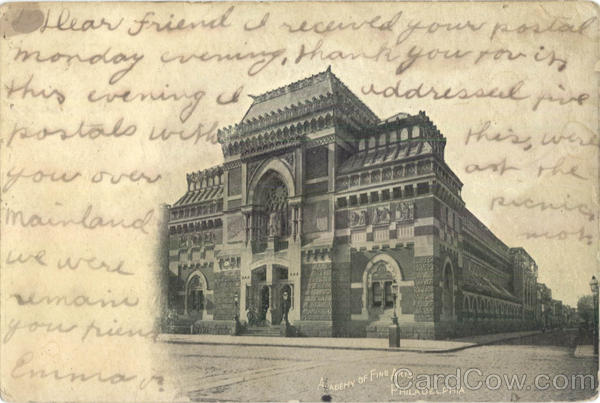 Dear Friend I received your postal
Monday evening, thank you for it,
this evening I addressed five
postals with this, were
you over at the
Mainland picnic,
we were not.
remain
you friend
Emma
Academy of Fine Arts
Philadelphia
CardCow.com